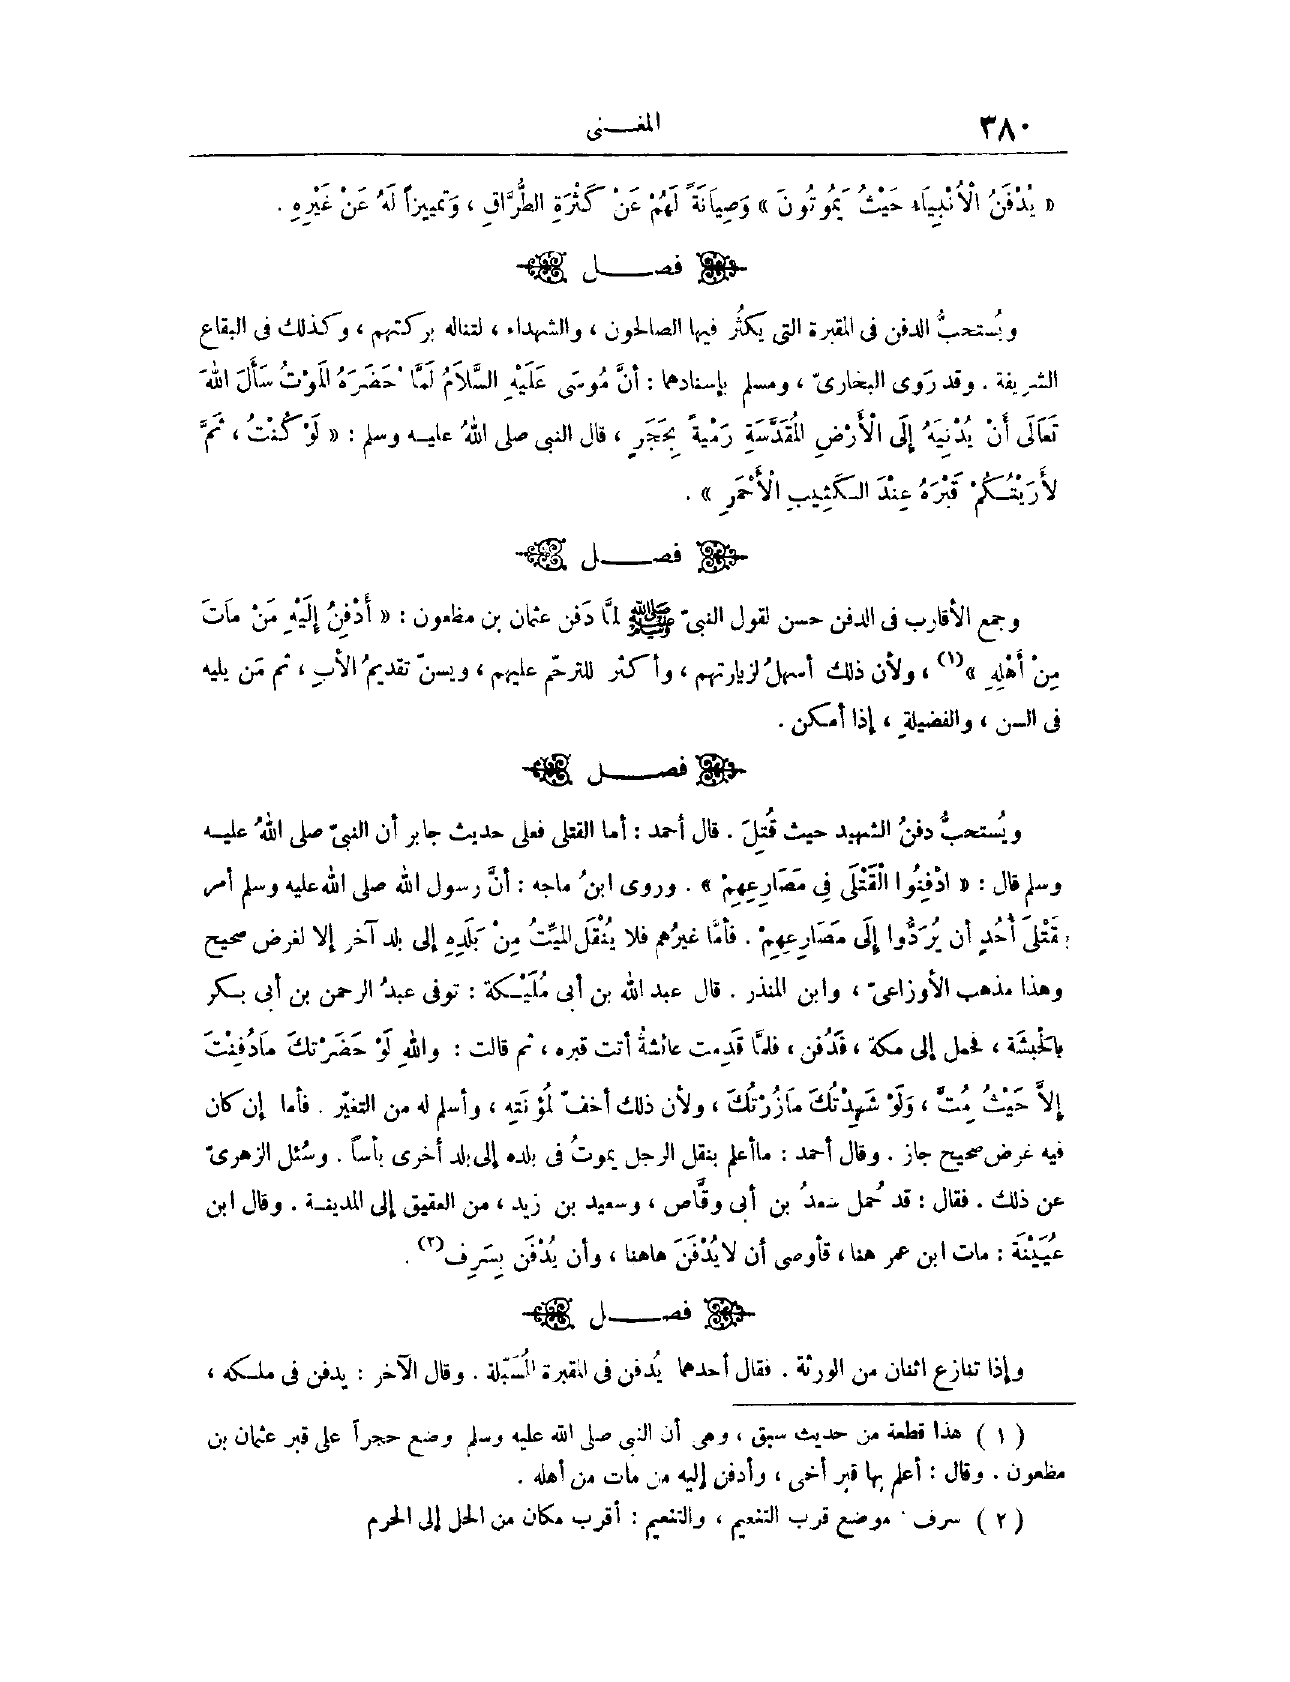 ٣٨٠
المغنى
« يُدْفَنُ الْأَنْبِيَاء حَيْثُ يَمُوتُونَ » وَصِيَانَةً لَهُمْ عَنْ كَثْرَةِ الطُّرَّاقِ ، وَتمييزاً لَهُ عَنْ غَيْرِهِ .
فصل
ويُستحبُّ الدفن فى المقبرة التى يكثُر فيها الصالحون ، والشهداء ، لتناله بركتهم ، وكذلك فى البقاع
الشريفة . وقد رَوى البخارىّ ، ومسلم بإسنادهما : أنَّ مُوسَى عَلَيْهِ السَّلَامُ لَمَّا حَضَرَهُ الْمَوْتُ سَأَلَ اللهَ
تَعَالَى أَنْ يُدْنِيَهُ إِلَى الْأَرْضِ الْمُقَدَّسَةِ رَمْيةً بِحَجَرٍ ، قال النبى صلى اللهُ عليه وسلم : « لَوْ كُنْتُ ، ثَمَّ
لأَرَيْتُكُمْ قَبْرَهُ عِنْدَ الكَثِيبِ الْأَحْمَرِ » .
فصل
وجمع الأقارب فى الدفن حسن لقول النبىّ ﷺ لمَّا دَفن عثمان بن مظعون : « أَدْفِنُ إِلَيْهِ مَنْ مَاتَ
مِنْ أَهْلِهِ »(١) ، ولأن ذلك أسهلُ لزيارتهم ، وأكثر للترحّم عليهم ، ويسنّ تقديمُ الأبِ ، ثم مَن يليه
فى السن ، والفضيلةِ ، إذا أمكن .
فصل
ويُستحبُّ دفنُ الشهيد حيث قُتِلَ . قال أحمد : أما القتلى فعلى حديث جابر أن النبىّ صلى اللهُ عليه
وسلم قال : « ادْفِنُوا الْقَتْلَى فِى مَصَارِعِهِمْ » . وروى ابنُ ماجه : أنَّ رسول الله صلى الله عليه وسلم أمر
بِقَتْلَى أُحُدٍ أن يُرَدُّوا إِلَى مَصَارِعِهِمْ . فأمَّا غيرُهم فلا يُنْقَل الميِّتُ مِنْ بَلَدِهِ إلى بلد آخر إلا لغرض صحيح
وهذا مذهب الأوزاعىّ ، وابن المنذر . قال عبد الله بن أبى مُلَيْكة : توفى عبدُ الرحمن بن أبى بكر
بالْحبشَة ، فحمل إلى مكة ، فَدُفن ، فلمَّا قَدِمت عائشةُ أتت قبره ، ثم قالت : واللهِ لَوْ حَضَرْتكَ مَادُفِنْتَ
إِلاَّ حَيْثُ مِتَّ ، وَلَوْ شَهِدْتُكَ مَازُرْتُكَ ، ولأن ذلك أخفّ لمُؤنَتِهِ ، وأسلم له من التغيّر . فأما إن كان
فيه غرض صحيح جاز . وقال أحمد : ماأعلم بنقل الرجل يموتُ فى بلده إلى بلد أخرى بأساً . وسُئل الزهرىّ
عن ذلك . فقال : قد حُمل سعدُ بن أبى وقَّاص ، وسعيد بن زيد ، من العقيق إلى المدينة . وقال ابن
عُيَيْنَة : مات ابن عمر هنا ، فأوصى أن لايُدْفَنَ هاهنا ، وأن يُدْفَن بِسَرِف(٢) .
فصل
وإذا تنازع اثنان من الورثة . فقال أحدهما يُدفن فى المقبرة الْمُسَبّلة . وقال الآخر : يدفن فى ملكه ،
( ١ ) هذا قطعة من حديث سبق ، وهى أن النبى صلى الله عليه وسلم وضع حجراً على قبر عثمان بن
مظعون . وقال : أعلم بها قبر أخى ، وأدفن إليه من مات من أهله .
( ٢ ) سرف موضع قرب التنعيم ، والتنعيم : أقرب مكان من الحل إلى الحرم